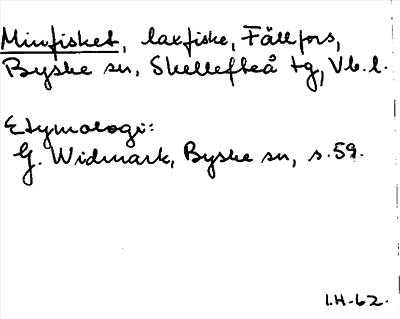 Minnfisket, laxfiske, Fällfors,
Byske sn, Skellefteå tg, Vb.l.
Etymologi:
G. Widmark, Byske sn, s. 59.
I.H-62.